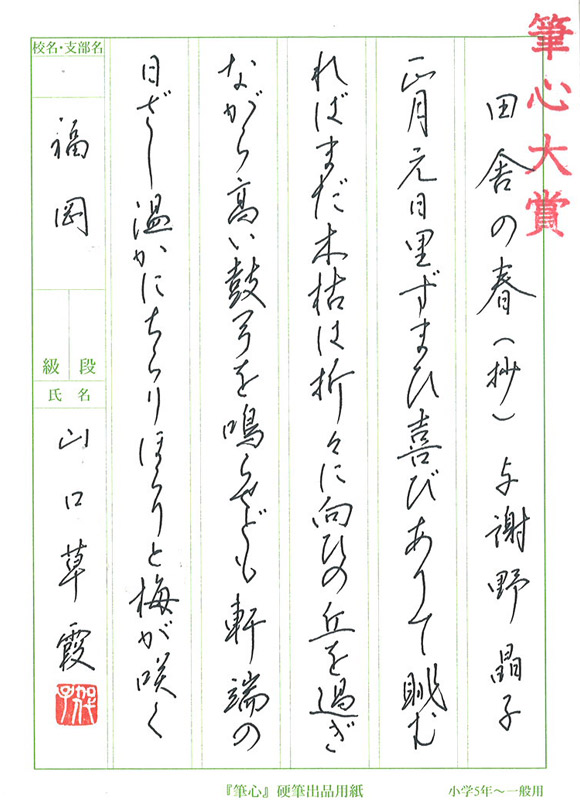 筆心大賞
田舎の春(抄) 与謝野晶子
正月元日里ずまひ喜びありて眺む
ればまだ木枯は折々に向ひの丘を過ぎ
ながら高い鼓弓を鳴らせども軒端の
日ざし温かにちらりほらりと梅が咲く
校名・支部名
福岡
級 段
氏名
山口草霞
『筆心』硬筆出品用紙
小学5年〜一般用